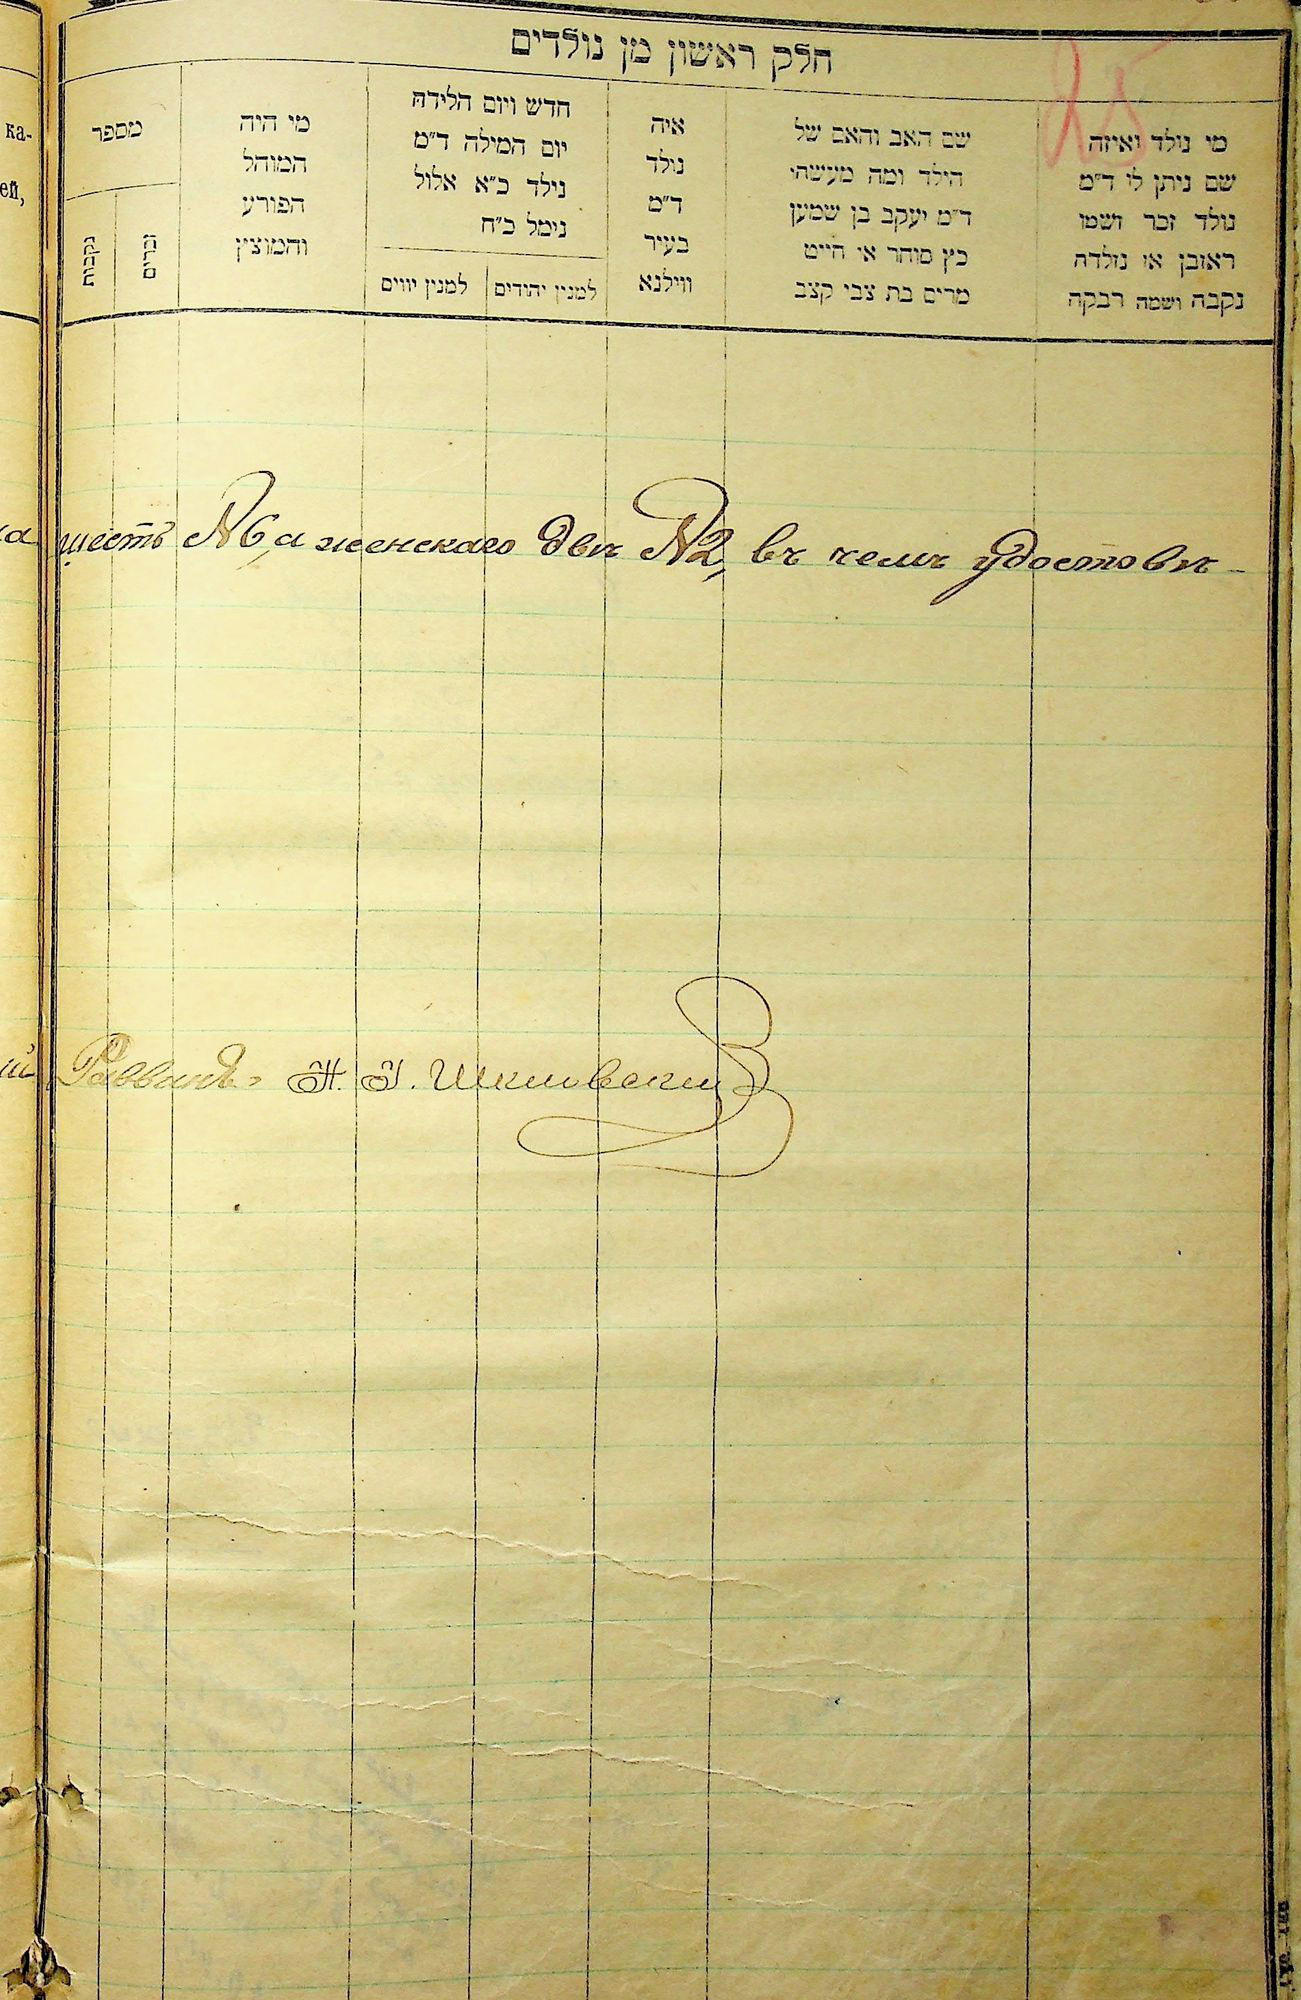 חלק ראשון מן נולדים
25
מי נולד ואיזה
שם ניתן לו ד״מ
נולד זכר ושמו
ראובן או נולדה
נקבה ושמה רבקה
שם האב והאם של
הילד ומה מעשהו
ד״מ יעקב בן שמעון
כץ סוחר או חייט
מרים בת צבי קצב
איה
נולד
ד״מ
בעיר
ווילנא
חדש ויום הלידה
יום המילה ד״מ
נילד כ״א אלול
נימל כ״ח
למנין יהודים
למנין יוונים
מי היה
המוהל
הפורע
והמוצץ
מספר
זכרים
נקבות
ка-
ей,
шесть №6, а женскаго двѣ №2, въ чемъ удостовѣ-
Раввинъ Н. I. Шкловскій